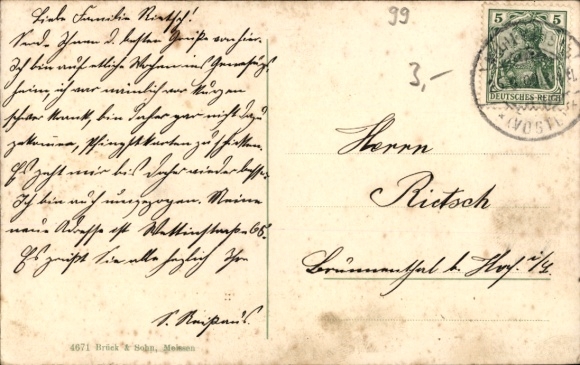 Liebe Familie Rietsch!
Sende Ihnen d. besten Grüße von hier.
Ich bin auf etliche Wochen ins Genesungs-
heim, ich war nämlich vor Kurzen
schwer krank, bin daher gar nicht dazu
gekommen, Pfingstkarten zu schicken.
Es geht mir bis daher wieder besser.
Ich bin auch umgezogen. Meine
neue Adresse ist Wettinstraße 65.
Es grüßt Sie alle herzlich Ihr
S.
4671 Brück & Sohn, Meissen
99
3,-
5 5
DEUTSCHES REICH
Herrn
Rietsch
Brunnenthal b. Hof. i/